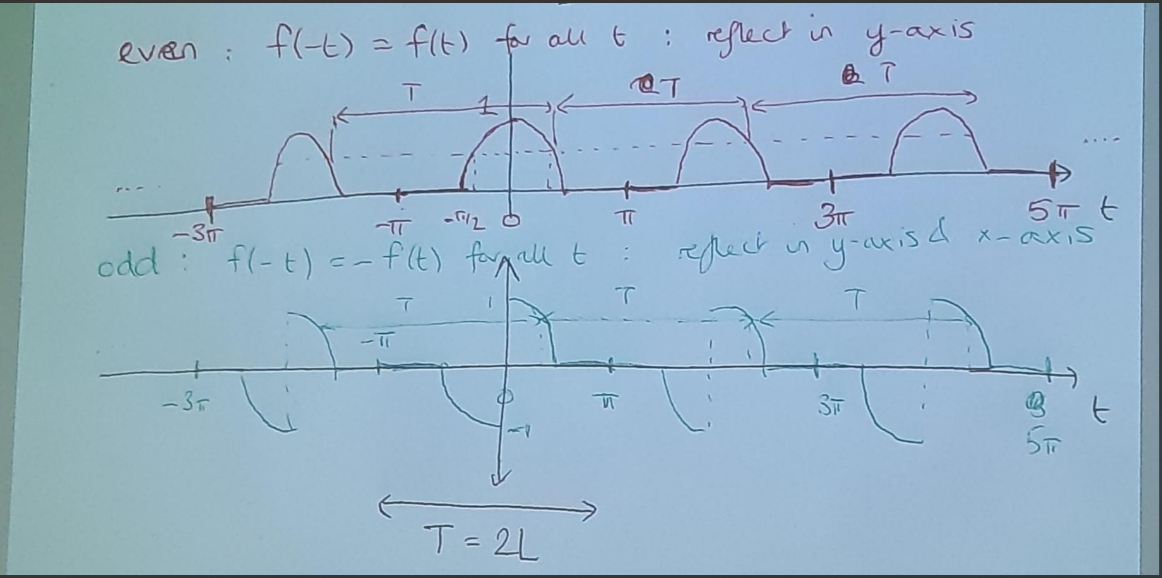 even : f(-t) = f(t) for all t : reflect in y-axis
T 1 T T
.... ....
-3π -π -π/2 O π 3π 5π t
odd : f(-t) = -f(t) for all t : reflect in y-axis & x-axis
T 1 T T
-π
-3π O π 3π 5π t
-1
T = 2L